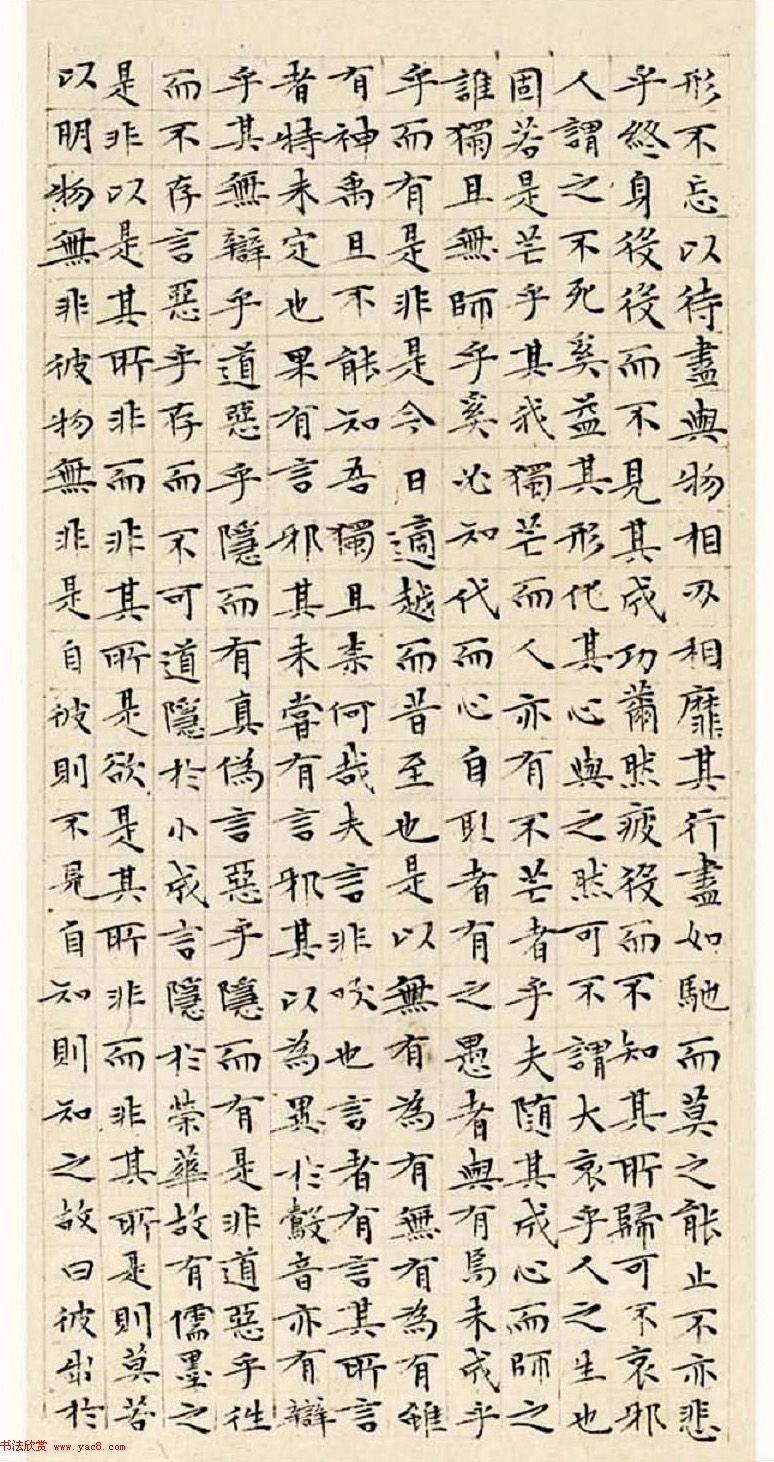 形不忘以待盡與物相刃相靡其行盡如馳而莫之能止不亦悲
乎終身役役而不見其成功薾然疲役而不知其所歸可不哀邪
人謂之不死奚益其形化其心與之然可不謂大哀乎人之生也
固若是芒乎其我獨芒而人亦有不芒者乎夫隨其成心而師之
誰獨且無師乎奚必知代而心自取者有之愚者與有焉未成乎
乎而有是非是今日適越而昔至也是以無有為有無有為有雖
有神禹且不能知吾獨且柰何哉夫言非吹也言者有言其所言
者特未定也果有言邪其未嘗有言邪其以為異於鷇音亦有辯
乎其無辯乎道惡乎隱而有真偽言惡乎隱而有是非道惡乎往
而不存言惡乎存而不可道隱於小成言隱於榮華故有儒墨之
是非以是其所非而非其所是欲是其所非而非其所是則莫若
以明物無非彼物無非是自彼則不見自知則知之故曰彼出於
书法欣赏 www.yac8.com